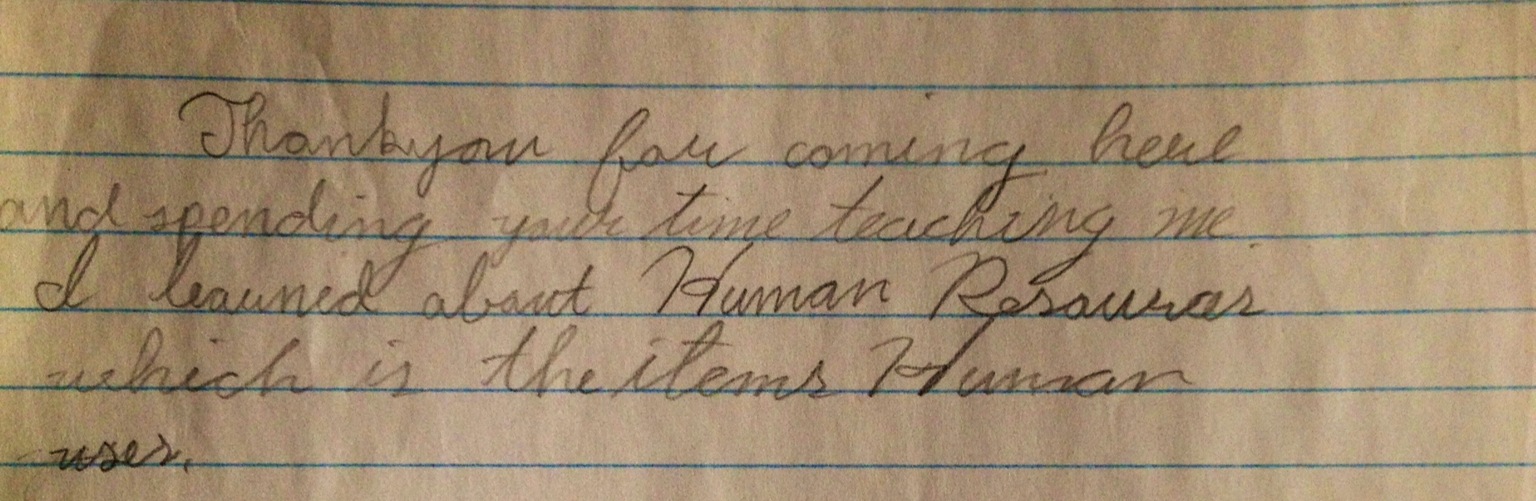 Thankyou for coming here
and spending your time teaching me.
I learned about Human Resources
which is the items Human
uses.